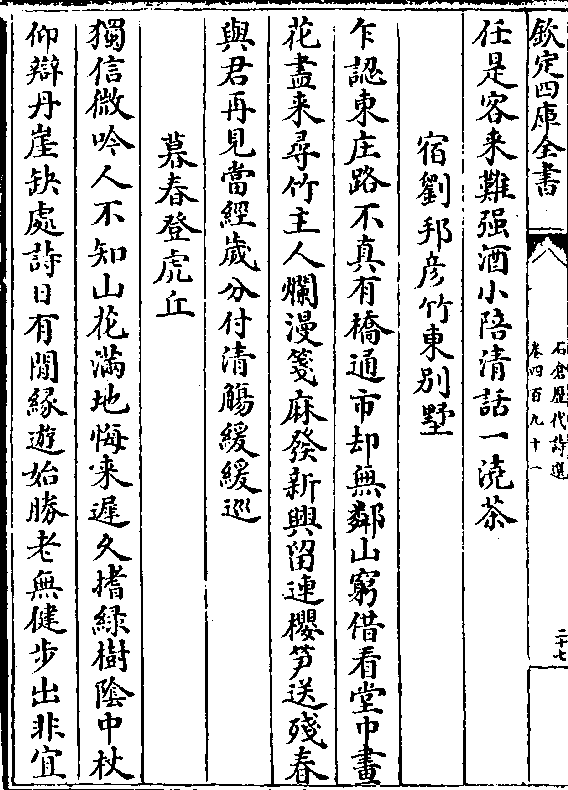 欽定四庫全書
石倉歷代詩選
卷四百九十一
二十七
任是客来難强酒小陪清話一澆茶
宿劉邦彦竹東别墅
乍認東庄路不真有橋通市却無鄰山窮借看堂中畫
花盡来尋竹主人爛漫箋麻發新興留連櫻笋送殘春
與君再見當經歲分付清觴緩緩巡
暮春登虎丘
獨信微吟人不知山花滿地悔来遲久揩緑樹陰中杖
仰辯丹崖缺處詩日有閒緣遊始勝老無健步出非宜